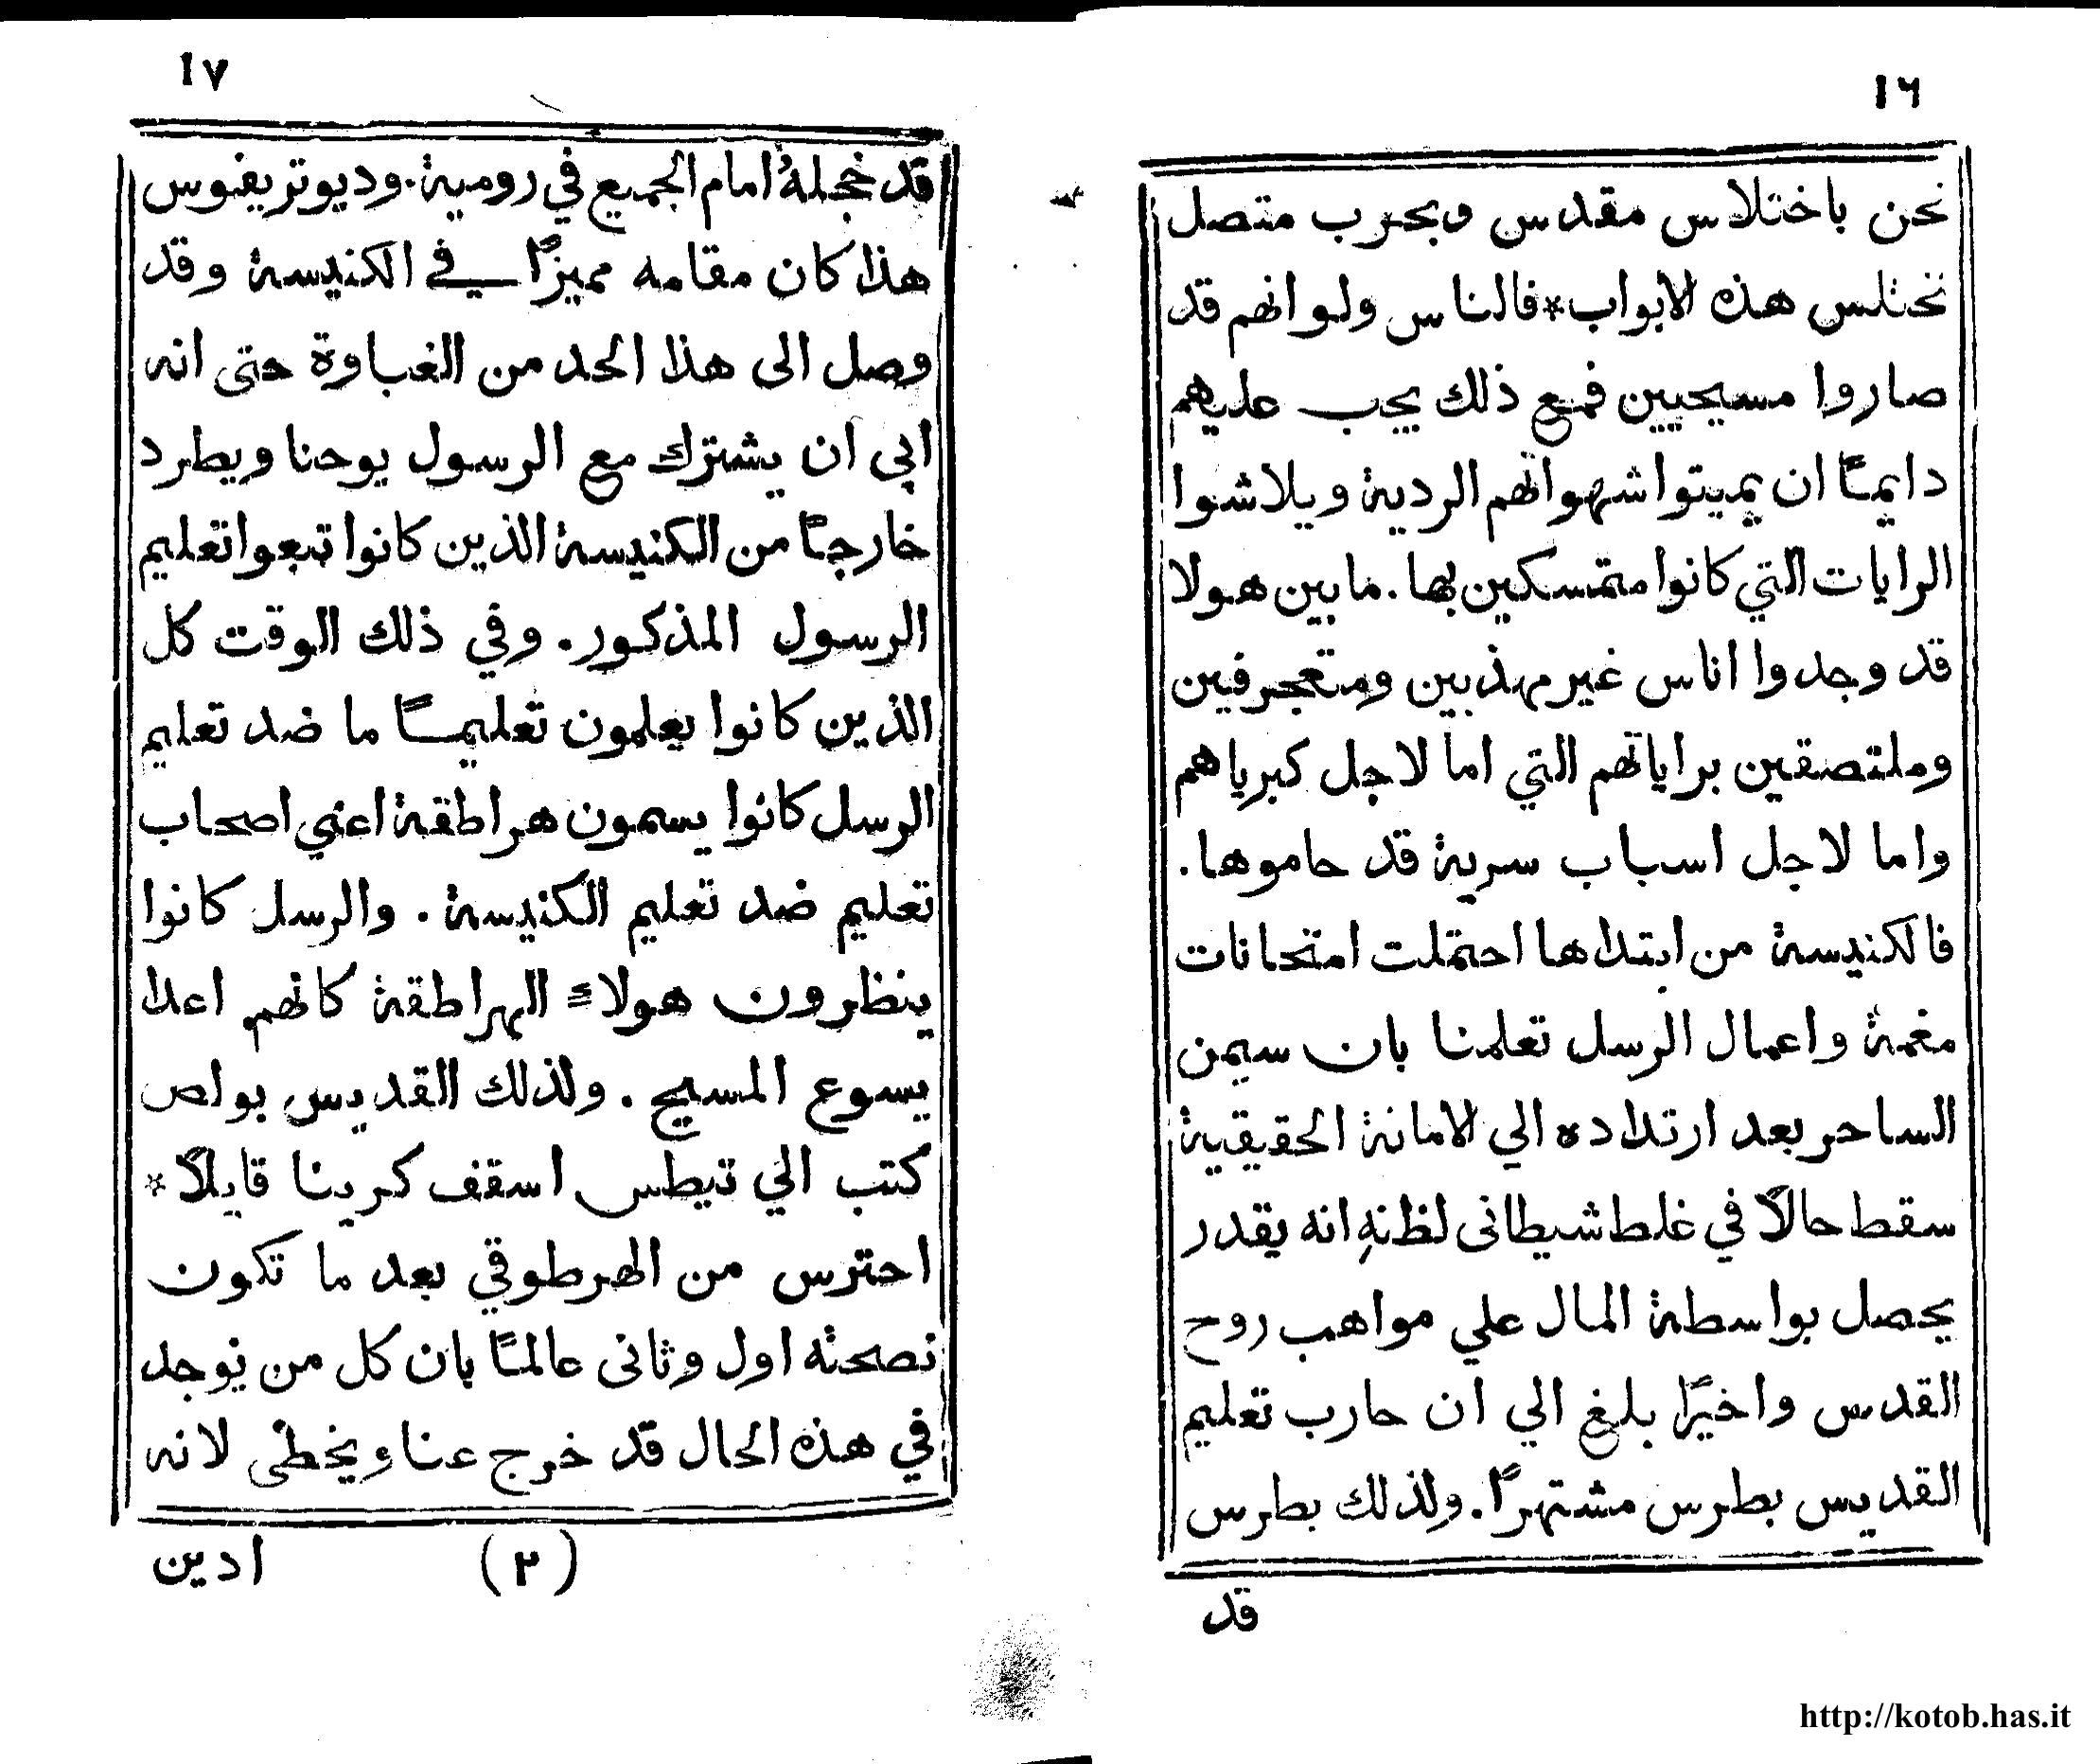 ١٦
نحن باختلاس مقدس وبحرب متصل
نختلس هذه الابواب * فالناس ولو انهم قد
صاروا مسيحيين فمع ذلك يجب عليهم
دايمًا ان يميتوا شهواتهم الردية ويلاشوا
الرايات التي كانوا متمسكين بها . ما بين هولا
قد وجدوا اناس غير مهذبين ومتعجرفين
وملتصقين براياتهم التي اما لاجل كبرياهم
واما لاجل اسباب سرية قد حاموها .
فالكنيسة من ابتداها احتملت امتحانات
مغمة واعمال الرسل تعلمنا بان سيمن
الساحر بعد ارتداده الي الامانة الحقيقية
سقط حالًا في غلط شيطانى لظنهِ انه يقدر
يحصل بواسطة المال علي مواهب روح
القدس واخيرًا بلغ الي ان حارب تعليم
القديس بطرس مشتهرًا . ولذلك بطرس
قد
١٧
قد خجلهُ امام الجميع في رومية . وديوتريفوس
هذا كان مقامه مميزًا في الكنيسة وقد
وصل الى هذا الحد من الغباوة حتى انه
ابى ان يشترك مع الرسول يوحنا ويطرد
خارجًا من الكنيسة الذين كانوا تبعوا تعليم
الرسول المذكور . وفي ذلك الوقت كل
الذين كانوا يعلمون تعليمًا ما ضد تعليم
الرسل كانوا يسمون هراطقة اعني اصحاب
تعليم ضد تعليم الكنيسة . والرسل كانوا
ينظرون هولاء الهراطقة كانهم اعدا
يسوع المسيح . ولذلك القديس بولص
كتب الي تيطس اسقف كريتا قايلًا *
احترس من الهرطوقي بعد ما تكون
نصحته اول وثانى عالمًا بان كل من يوجد
في هذه الحال قد خرج عنا ويخطى لانه
(٢)
ادين
http://kotob.has.it